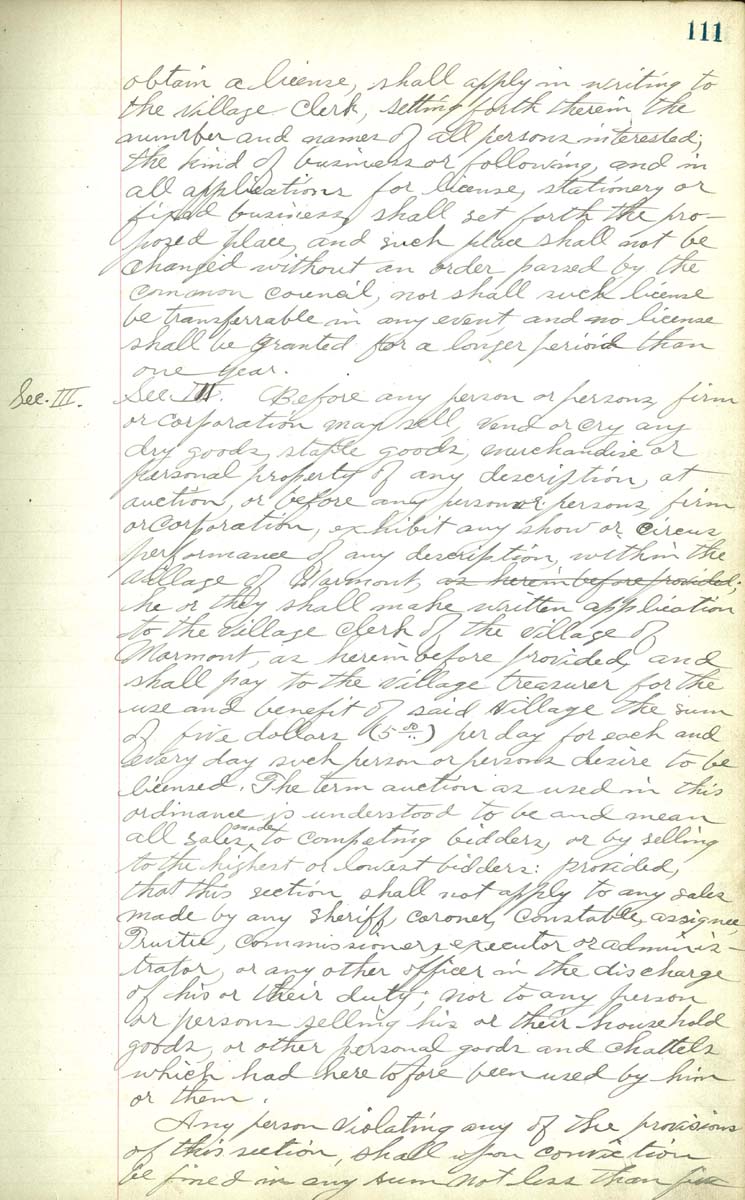 111
obtain a license, shall apply in writing to
the village Clerk, setting forth therein the
number and names of all persons interested;
the kind of business or following, and in
all applications for license, stationery or
fixed business, shall set forth the pro-
posed place, and such place shall not be
changed without an order passed by the
common council, nor shall such license
be transferrable in any event, and no license
shall be granted for a longer period than
one year.
Sec. III.
Sec. III. Before any person or persons, firm
or corporation may sell, vend or cry any
dry goods, staple goods, merchandise or
personal property of any description, at
auction, or before any person or persons, firm
or corporation, exhibit any show or circus
performance of any description, within the
village of Marmont, as herein before provided;
he or they shall make written application
to the village clerk of the village of
Marmont, as herein before provided, and
shall pay to the village treasurer for the
use and benefit of said village the sum
of five dollars (5.00) per day for each and
every day such person or persons desire to be
licensed. The term auction as used in this
ordinance is understood to be and mean
all sales made to competing bidders, or by selling
to the highest or lowest bidders: provided,
that this section shall not apply to any sales
made by any sheriff, coroner, constable, assignee,
Trustee, commissioner, executor or adminis-
trator, or any other officer in the discharge
of his or their duty; nor to any person
or persons selling his or their household
goods, or other personal goods and chattels
which had here tofore been used by him
or them.
Any person violating any of the provisions
of this section, shall upon conviction
be fined in any sum not less than five